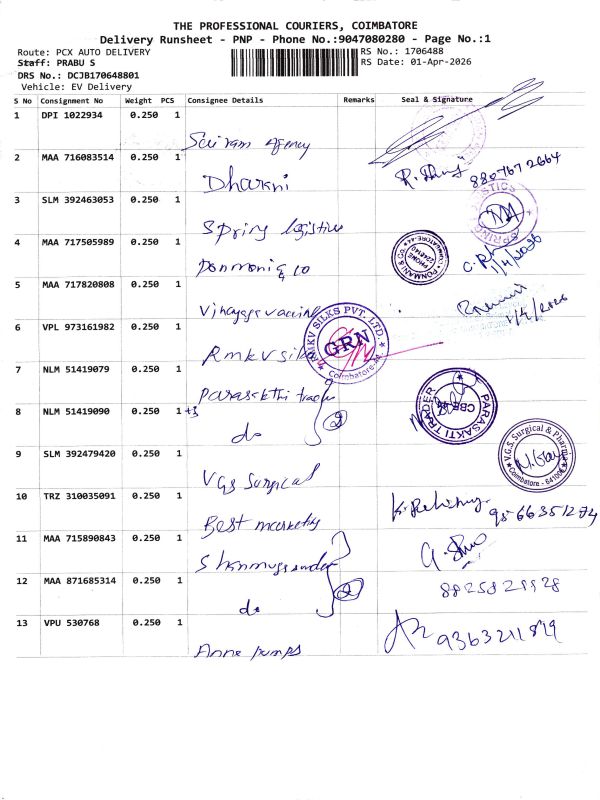 THE PROFESSIONAL COURIERS, COIMBATORE
Delivery Runsheet - PNP - Phone No.:9047080280 - Page No.:1
Route: PCX AUTO DELIVERY
RS No.: 1706488
Staff: PRABU S
RS Date: 01-Apr-2026
DRS No.: DCJB170648801
Vehicle: EV Delivery
S No Consignment No Weight PCS Consignee Details Remarks Seal & Signature
1 DPI 1022934 0.250 1
Sri ram agency
2 MAA 716083514 0.250 1
Dharni
8807672664
3 SLM 392463053 0.250 1
Spring logistics
SPRING LOGISTICS
4 MAA 717505989 0.250 1
Ponmani & co
PONMANI & CO.
PHONE
1/4/2026
5 MAA 717820808 0.250 1
Vinayaga vaccine
1/4/2026
6 VPL 973161982 0.250 1
Rmkv silk
RMKV SILKS PVT. LTD.
GRN
Coimbatore
7 NLM 51419079 0.250 1
Parasakthi trader
8 NLM 51419090 0.250 1 +3
do
2
PARASAKTI TRADER
CBE
9 SLM 392479420 0.250 1
VGS Surgical
V.G.S. Surgical & Pharma
Coimbatore
10 TRZ 310035091 0.250 1
Best marketing
9566351274
11 MAA 715890843 0.250 1
Shanmugsundar
12 MAA 871685314 0.250 1
do
2
8825829928
13 VPU 530768 0.250 1
Anne pumps